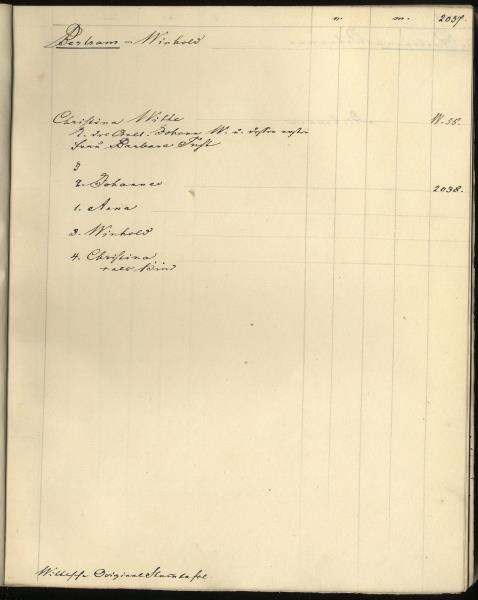 n. m. 2037.
Bertram – Winhold
Christina Witte W. 35.
T. des Joh. Johann W. u. dessen erster
Frau Barbara Fust
3
2. Johannes 2038.
1. Anna
3. Winhold
4. Christina
+ als Kind
Witte'sche Original Stammtafel